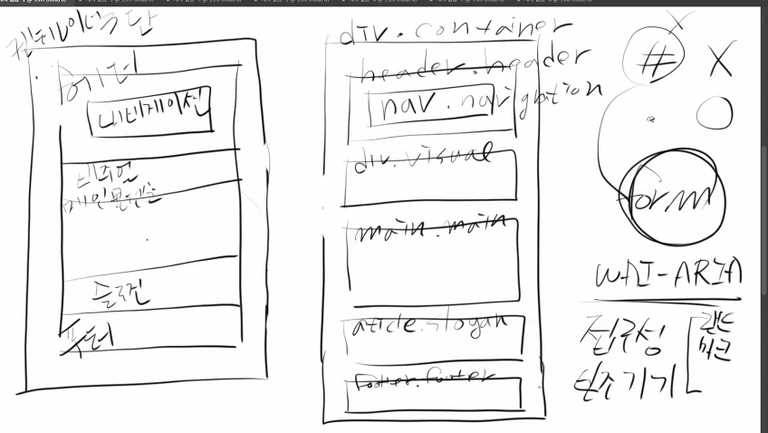 헤더
네비게이션
비주얼
메인콘텐츠
슬로건
푸터
div.container
header.header
nav.navigation
div.visual
main.main
aticle.slogan
footer.footer
# X
X
form
WAI-ARIA
접근성
보조기기
랜드
마크